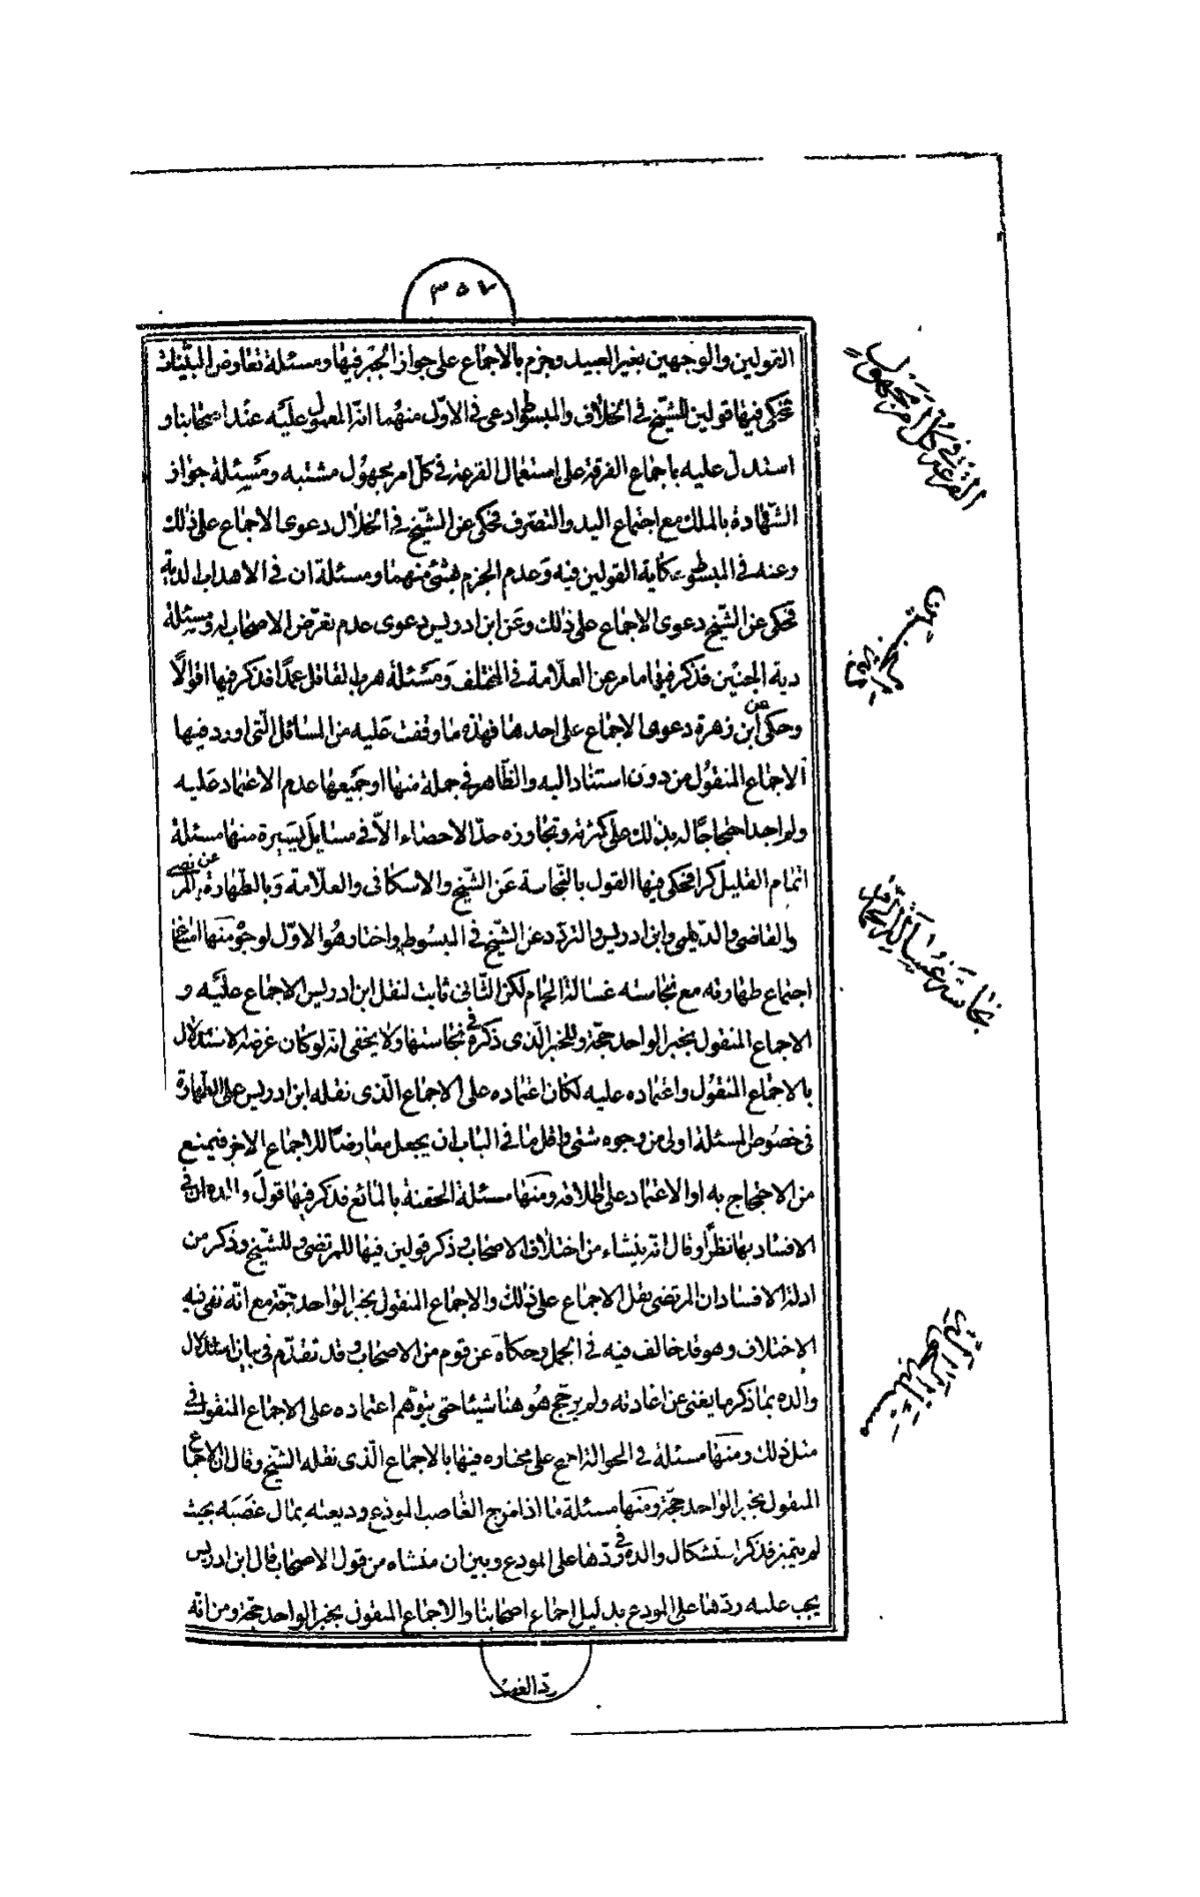 ٣٥٧
القولين والوجهين بغير العبيد وجزم بالاجماع على جواز الجبر فيها ومسئلة تعارض البينات
فحكى فيها قولين للشيخ في الخلاف والمبسوط وادعى في الاول منهما انه المعول عليه عند اصحابنا و
استدل عليه باجماع الفرقة على استعمال القرعة في كل امر مجهول مشتبه ومسئلة جواز
الشهادة بالملك مع اجتماع اليد والتصرف فحكى عن الشيخ في الخلاف دعوى الاجماع على ذلك
وعنه في المبسوط حكاية القولين فيه وعدم الجزم بشئ منهما ومسئلة ان في الاهداب الدية
فحكى عن الشيخ دعوى الاجماع على ذلك وعن ابن ادريس دعوى عدم تعرض الاصحاب له ومسئلة
دية الجنين فذكر فيها ما مر عن العلامة في المختلف ومسئلة هرب القاتل عمدا فذكر فيها اقوالا
وحكى عن ابن زهرة دعوى الاجماع على احدها فهذه ما وقفت عليه من المسائل التى اورد فيها
الاجماع المنقول من دون استناد اليه والظاهر في جملة منها او جميعها عدم الاعتماد عليه
ولم اجد احتجاجا له بذلك على كثرته وتجاوزه حد الاحصاء الا في مسايل يسيرة منها مسئلة
اتمام القليل كرا فحكى فيها القول بالنجاسة عن الشيخ والاسكافى والعلامة وبالطهارة عن المرتضى
والقاضى والديلمى وابن ادريس والتردد عن الشيخ في المبسوط واختار هو الاول لوجوه منها امتناع
اجتماع طهارته مع نجاسته غسالة الحمام لكن الثانى ثابت لنقل ابن ادريس الاجماع عليه و
الاجماع المنقول بخبر الواحد حجة وللخبر الذى ذكره في نجاستها ولا يخفى انه لو كان غرضه الاستدلال
بالاجماع المنقول واعتماده عليه لكان اعتماده على الاجماع الذى نقله ابن ادريس على الطهارة
في خصوص المسئلة اولى من وجوه شتى واقل ما في الباب ان يجعل معارضا للاجماع الاخر فيمنع
من الاحتجاج به او الاعتماد على اطلاقه ومنها مسئلة الحقنة بالمائع فذكر فيها قول والده ان في
الافساد بها نظرا وقال انه ينشاء من اختلاف الاصحاب وذكر قولين فيها للمرتضى وللشيخ وذكر من
ادلة الافساد ان المرتضى نقل الاجماع على ذلك والاجماع المنقول بخبر الواحد حجة مع انه نفى فيه
الاختلاف وهو قد خالف فيه في الجمل وحكاه عن قوم من الاصحاب وقد تقدم في بيان استدلال
والده بما ذكر ما يغنى عن اعادته ولم يرجح هو هنا شيئا حتى يتوهم اعتماده على الاجماع المنقول في
مثل ذلك ومنها مسئلة في الحوالة احتج على مختاره فيها بالاجماع الذى نقله الشيخ وقال ان الاجماع
المنقول بخبر الواحد حجة ومنها مسئلة ما اذا مزج الغاصب المودع وديعته بمال غصبه بحيث
لم يتميز فذكر استشكال والده في ردها على المودع وبين ان منشاه من قول الاصحاب قال ابن ادريس
يجب عليه ردها على المودع بدليل اجماع اصحابنا والاجماع المنقول بخبر الواحد حجة ومن انه
رد الغصب
القرعة في كل امر مجهول
دية الجنين
نجاسة غسالة الحمام